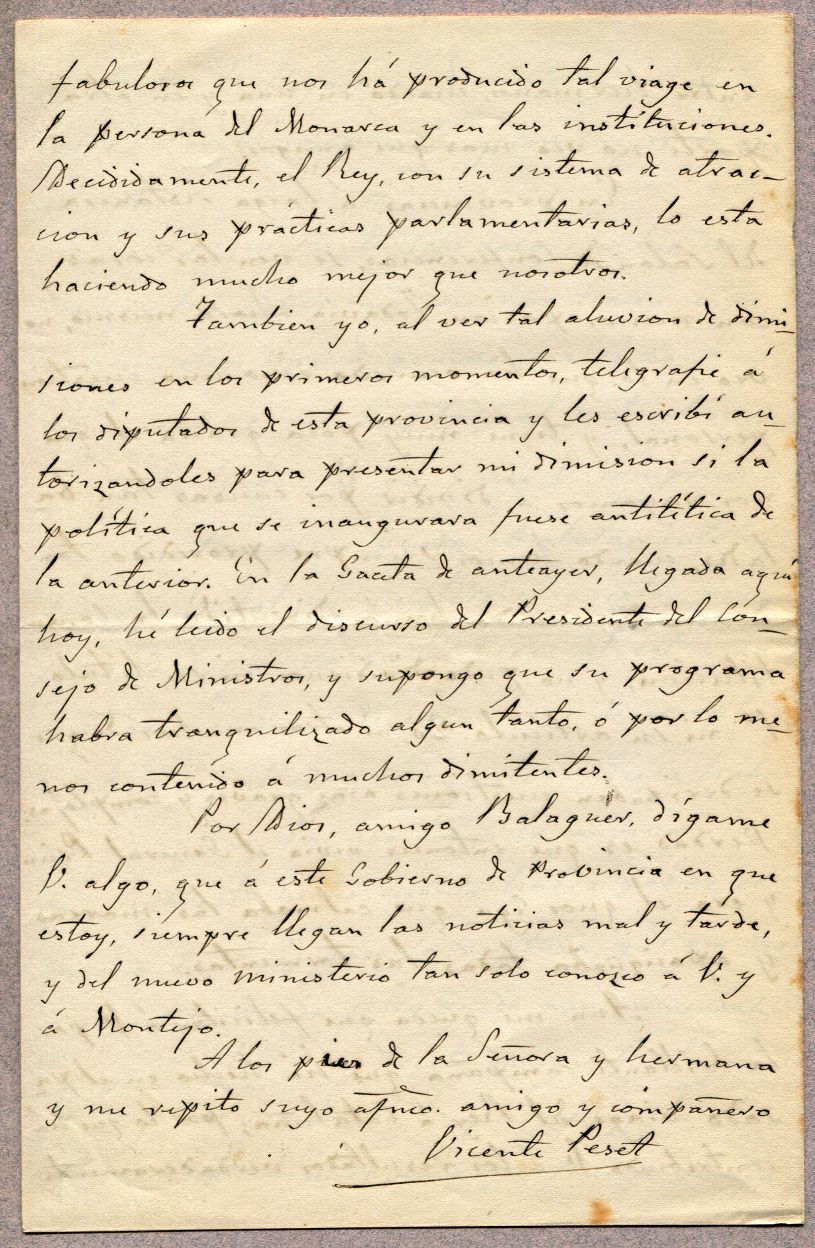 fabulosos que nos há producido tal viage en
la persona del Monarca y en las instituciones.
Decididamente, el Rey, con su sistema de atrac-
cion y sus prácticas parlamentarias, lo esta
haciendo mucho mejor que nosotros.
Tambien yo, al ver tal aluvion de dimi-
siones en los primeros momentos, telegrafié á
los diputados de esta provincia y les escribí au-
torizandoles para presentar mi dimision si la
política que se inaugurara fuese antitética de
la anterior. En la Gaceta de anteayer, llegada aquí
hoy, hé leido el discurso del Presidente del Con-
sejo de Ministros, y supongo que su programa
habra tranquilizado algun tanto, ó por lo me-
nos contenido á muchos dimitentes.
Por Dios, amigo Balaguer, dígame
V. algo, que á este Gobierno de Provincia en que
estoy, siempre llegan las noticias mal y tarde,
y del nuevo ministerio tan solo conozco á V. y
á Montejo.
A los pies de la Señora y hermana
y me repito suyo afmo. amigo y compañero
Vicente Peset